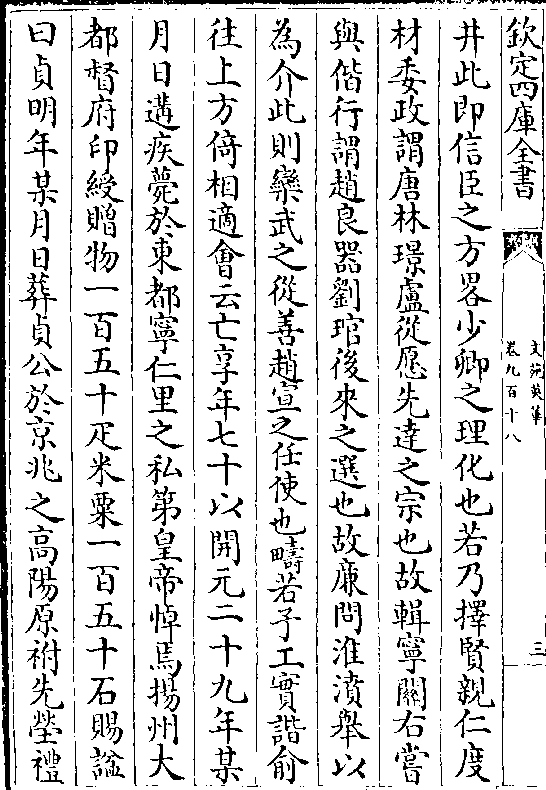 欽定四庫全書
文苑英華
卷九百十八
三
井此即信臣之方畧少卿之理化也若乃擇賢親仁度
材委政謂唐林璟盧從愿先達之宗也故輯寧關右嘗
與偕行謂趙良器劉琯後來之選也故廉問淮濆舉以
為介此則欒武之從善趙宣之任使也疇若予工實諧俞
往上方倚相適會云亡享年七十以開元二十九年某
月日遘疾薨於東都寧仁里之私第皇帝悼焉揚州大
都督府印綬贈物一百五十疋米粟一百五十石賜諡
曰貞明年某月日葬貞公於京兆之高陽原祔先塋禮